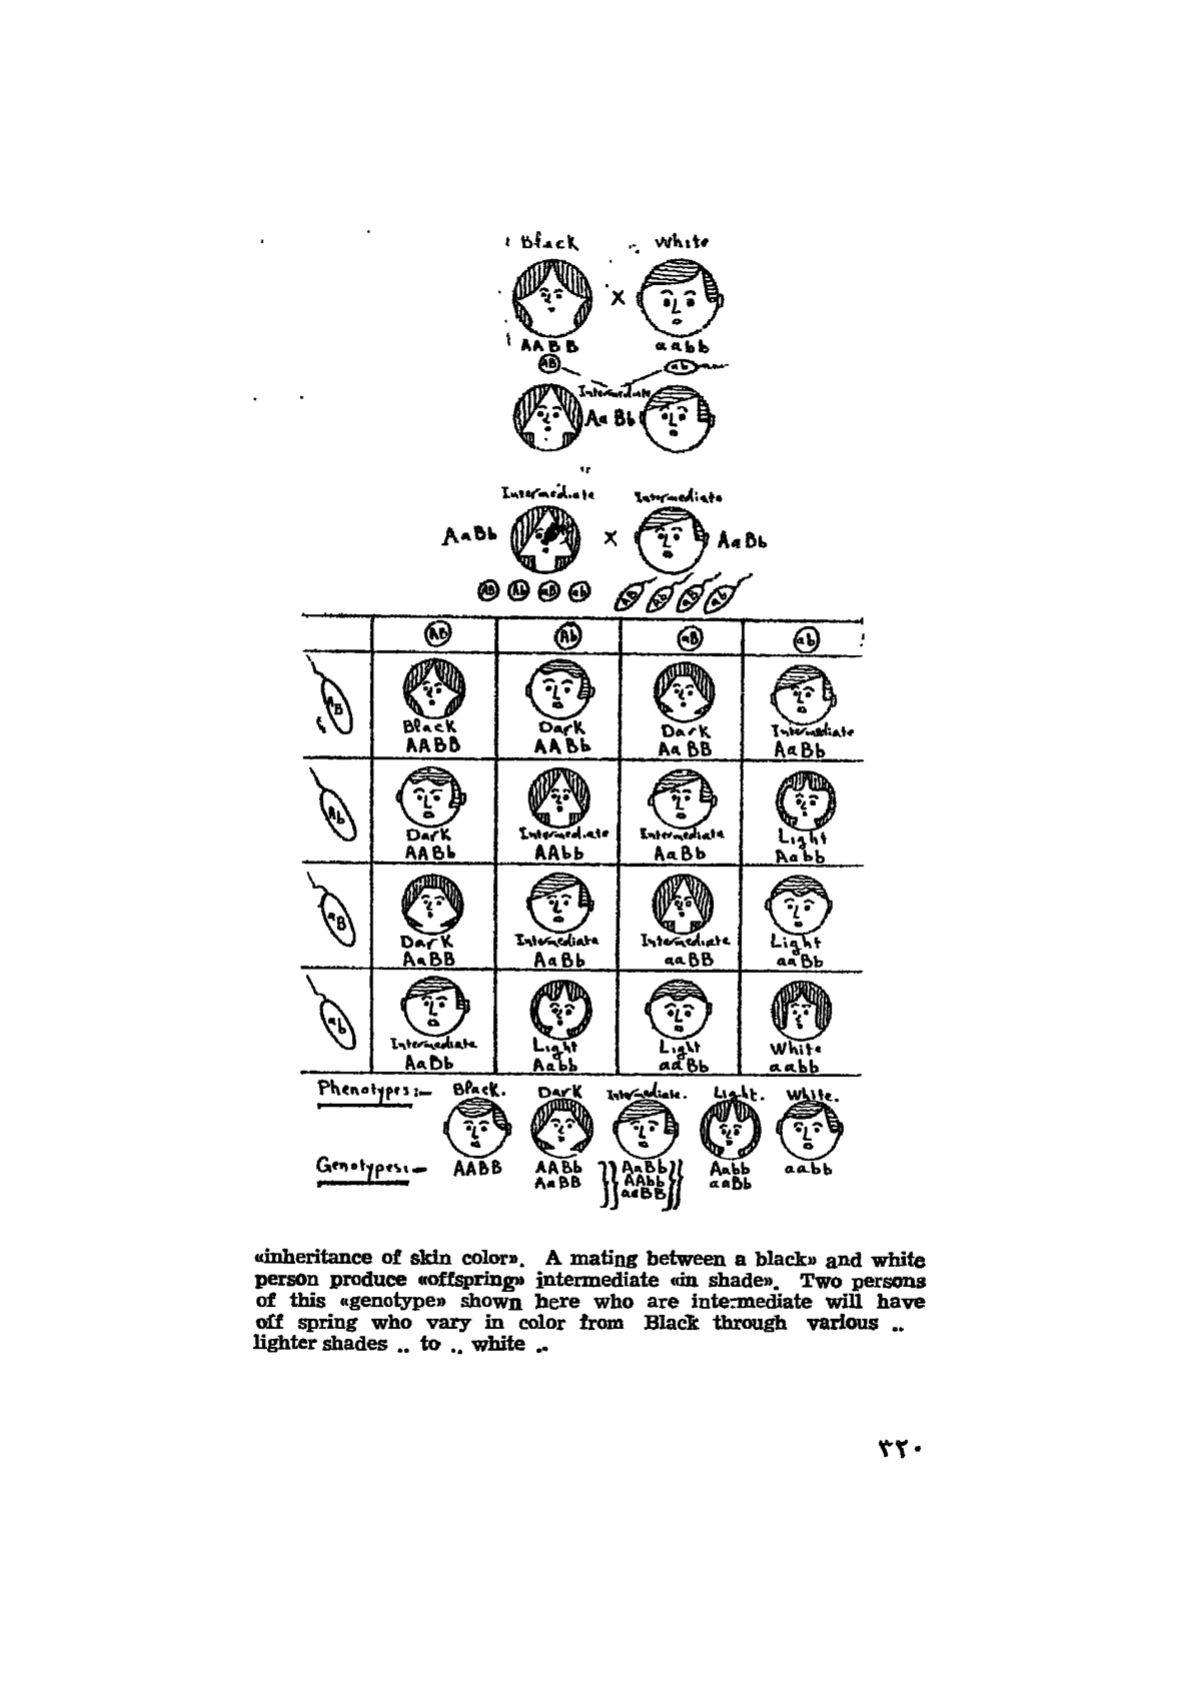 Black White
X
AABB aabb
AB ab
Intermediate
AaBb
Intermediate Intermediate
AaBb X AaBb
AB Ab aB ab AB Ab aB ab
AB Ab aB ab
AB
Black Dark Dark Intermediate
AABB AABb AaBB AaBb
Ab
Dark Intermediate Intermediate Light
AABb AAbb AaBb Aabb
aB
Dark Intermediate Intermediate Light
AaBB AaBb aaBB aaBb
ab
Intermediate Light Light White
AaBb Aabb aaBb aabb
Phenotypes:- Black. Dark Intermediate. Light. White.
Genotypes:- AABB AABb AaBb Aabb aabb
AaBB AAbb aaBb
aaBB
«inheritance of skin color». A mating between a black» and white
person produce «offspring» intermediate «in shade». Two persons
of this «genotype» shown here who are intermediate will have
off spring who vary in color from Black through various ..
lighter shades .. to .. white ..
٣٢٠